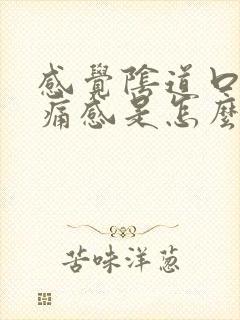 感覺陰道口
痛感是怎麼
苦味洋葱